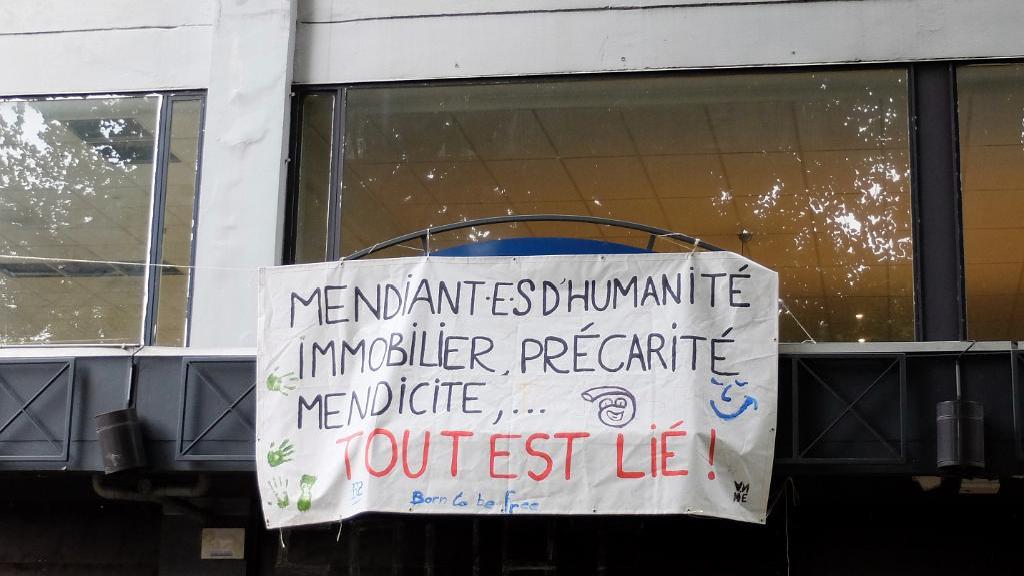 MENDIANT·E·S D'HUMANITÉ
IMMOBILIER, PRÉCARITÉ
MENDICITE,...
TOUT EST LIÉ !
Born to be free